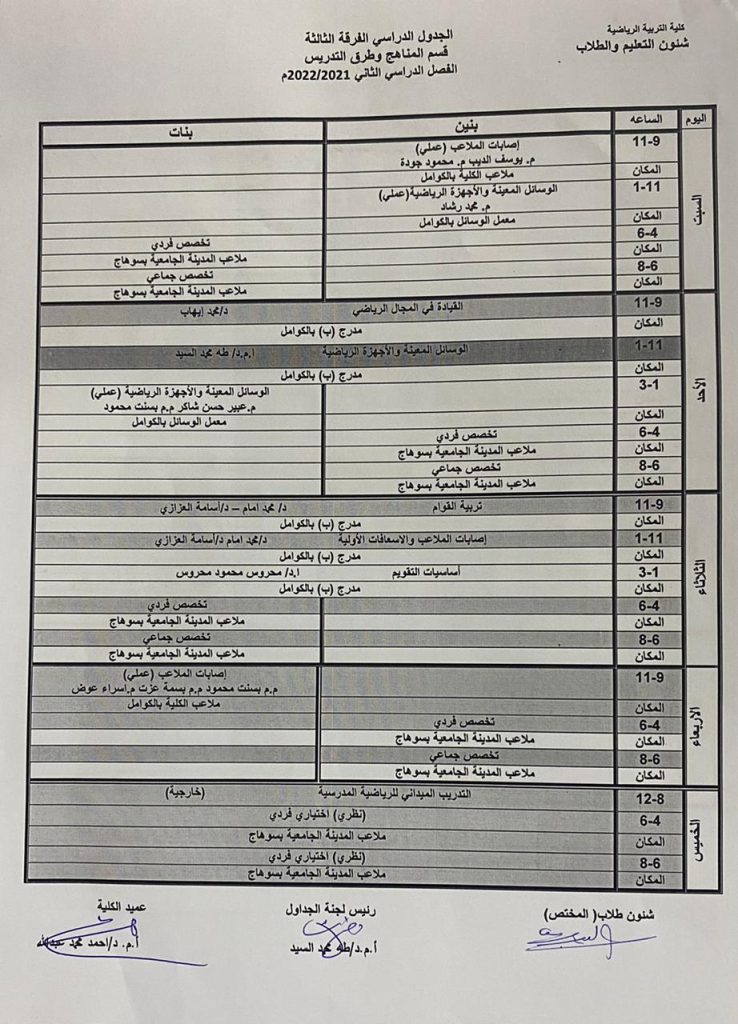 كلية التربية الرياضية
شئون التعليم والطلاب
الجدول الدراسي الفرقة الثالثة
قسم المناهج وطرق التدريس
الفصل الدراسي الثاني 2022/2021م
اليوم الساعه بنين بنات
السبت
11-9 إصابات الملاعب (عملي)
م. يوسف الديب م. محمود جودة
المكان ملاعب الكلية بالكوامل
1-11 الوسائل المعينة والأجهزة الرياضية(عملي)
م. محمد رشاد
المكان معمل الوسائل بالكوامل
6-4 تخصص فردي
المكان ملاعب المدينة الجامعية بسوهاج
8-6 تخصص جماعي
المكان ملاعب المدينة الجامعية بسوهاج
الأحد
11-9 القيادة في المجال الرياضي د/محمد إيهاب
المكان مدرج (ب) بالكوامل
1-11 الوسائل المعينة والأجهزة الرياضية ا.م.د/ طه محمد السيد
المكان مدرج (ب) بالكوامل
3-1 الوسائل المعينة والأجهزة الرياضية (عملي)
م.عبير حسن شاكر م.م بسنت محمود
المكان معمل الوسائل بالكوامل
6-4 تخصص فردي
المكان ملاعب المدينة الجامعية بسوهاج
8-6 تخصص جماعي
المكان ملاعب المدينة الجامعية بسوهاج
الثلاثاء
11-9 تربية القوام د/ محمد امام – د/أسامة العزازي
المكان مدرج (ب) بالكوامل
1-11 إصابات الملاعب والاسعافات الأولية د/محمد امام د/أسامة العزازي
المكان مدرج (ب) بالكوامل
3-1 أساسيات التقويم ا.د/ محروس محمود محروس
المكان مدرج (ب) بالكوامل
6-4 تخصص فردي
المكان ملاعب المدينة الجامعية بسوهاج
8-6 تخصص جماعي
المكان ملاعب المدينة الجامعية بسوهاج
الاربعاء
11-9 إصابات الملاعب (عملي)
م.م بسنت محمود م.م بسمة عزت م.اسراء عوض
المكان ملاعب الكلية بالكوامل
6-4 تخصص فردي
المكان ملاعب المدينة الجامعية بسوهاج
8-6 تخصص جماعي
المكان ملاعب المدينة الجامعية بسوهاج
الخميس
12-8 التدريب الميداني للرياضية المدرسية (خارجية)
6-4 (نظري) اختياري فردي
المكان ملاعب المدينة الجامعية بسوهاج
8-6 (نظري) اختياري فردي
المكان ملاعب المدينة الجامعية بسوهاج
شئون طلاب( المختص)
رئيس لجنة الجداول
أ.م.د/طه محمد السيد
عميد الكلية
أ.م. د/احمد محمد عبدالله